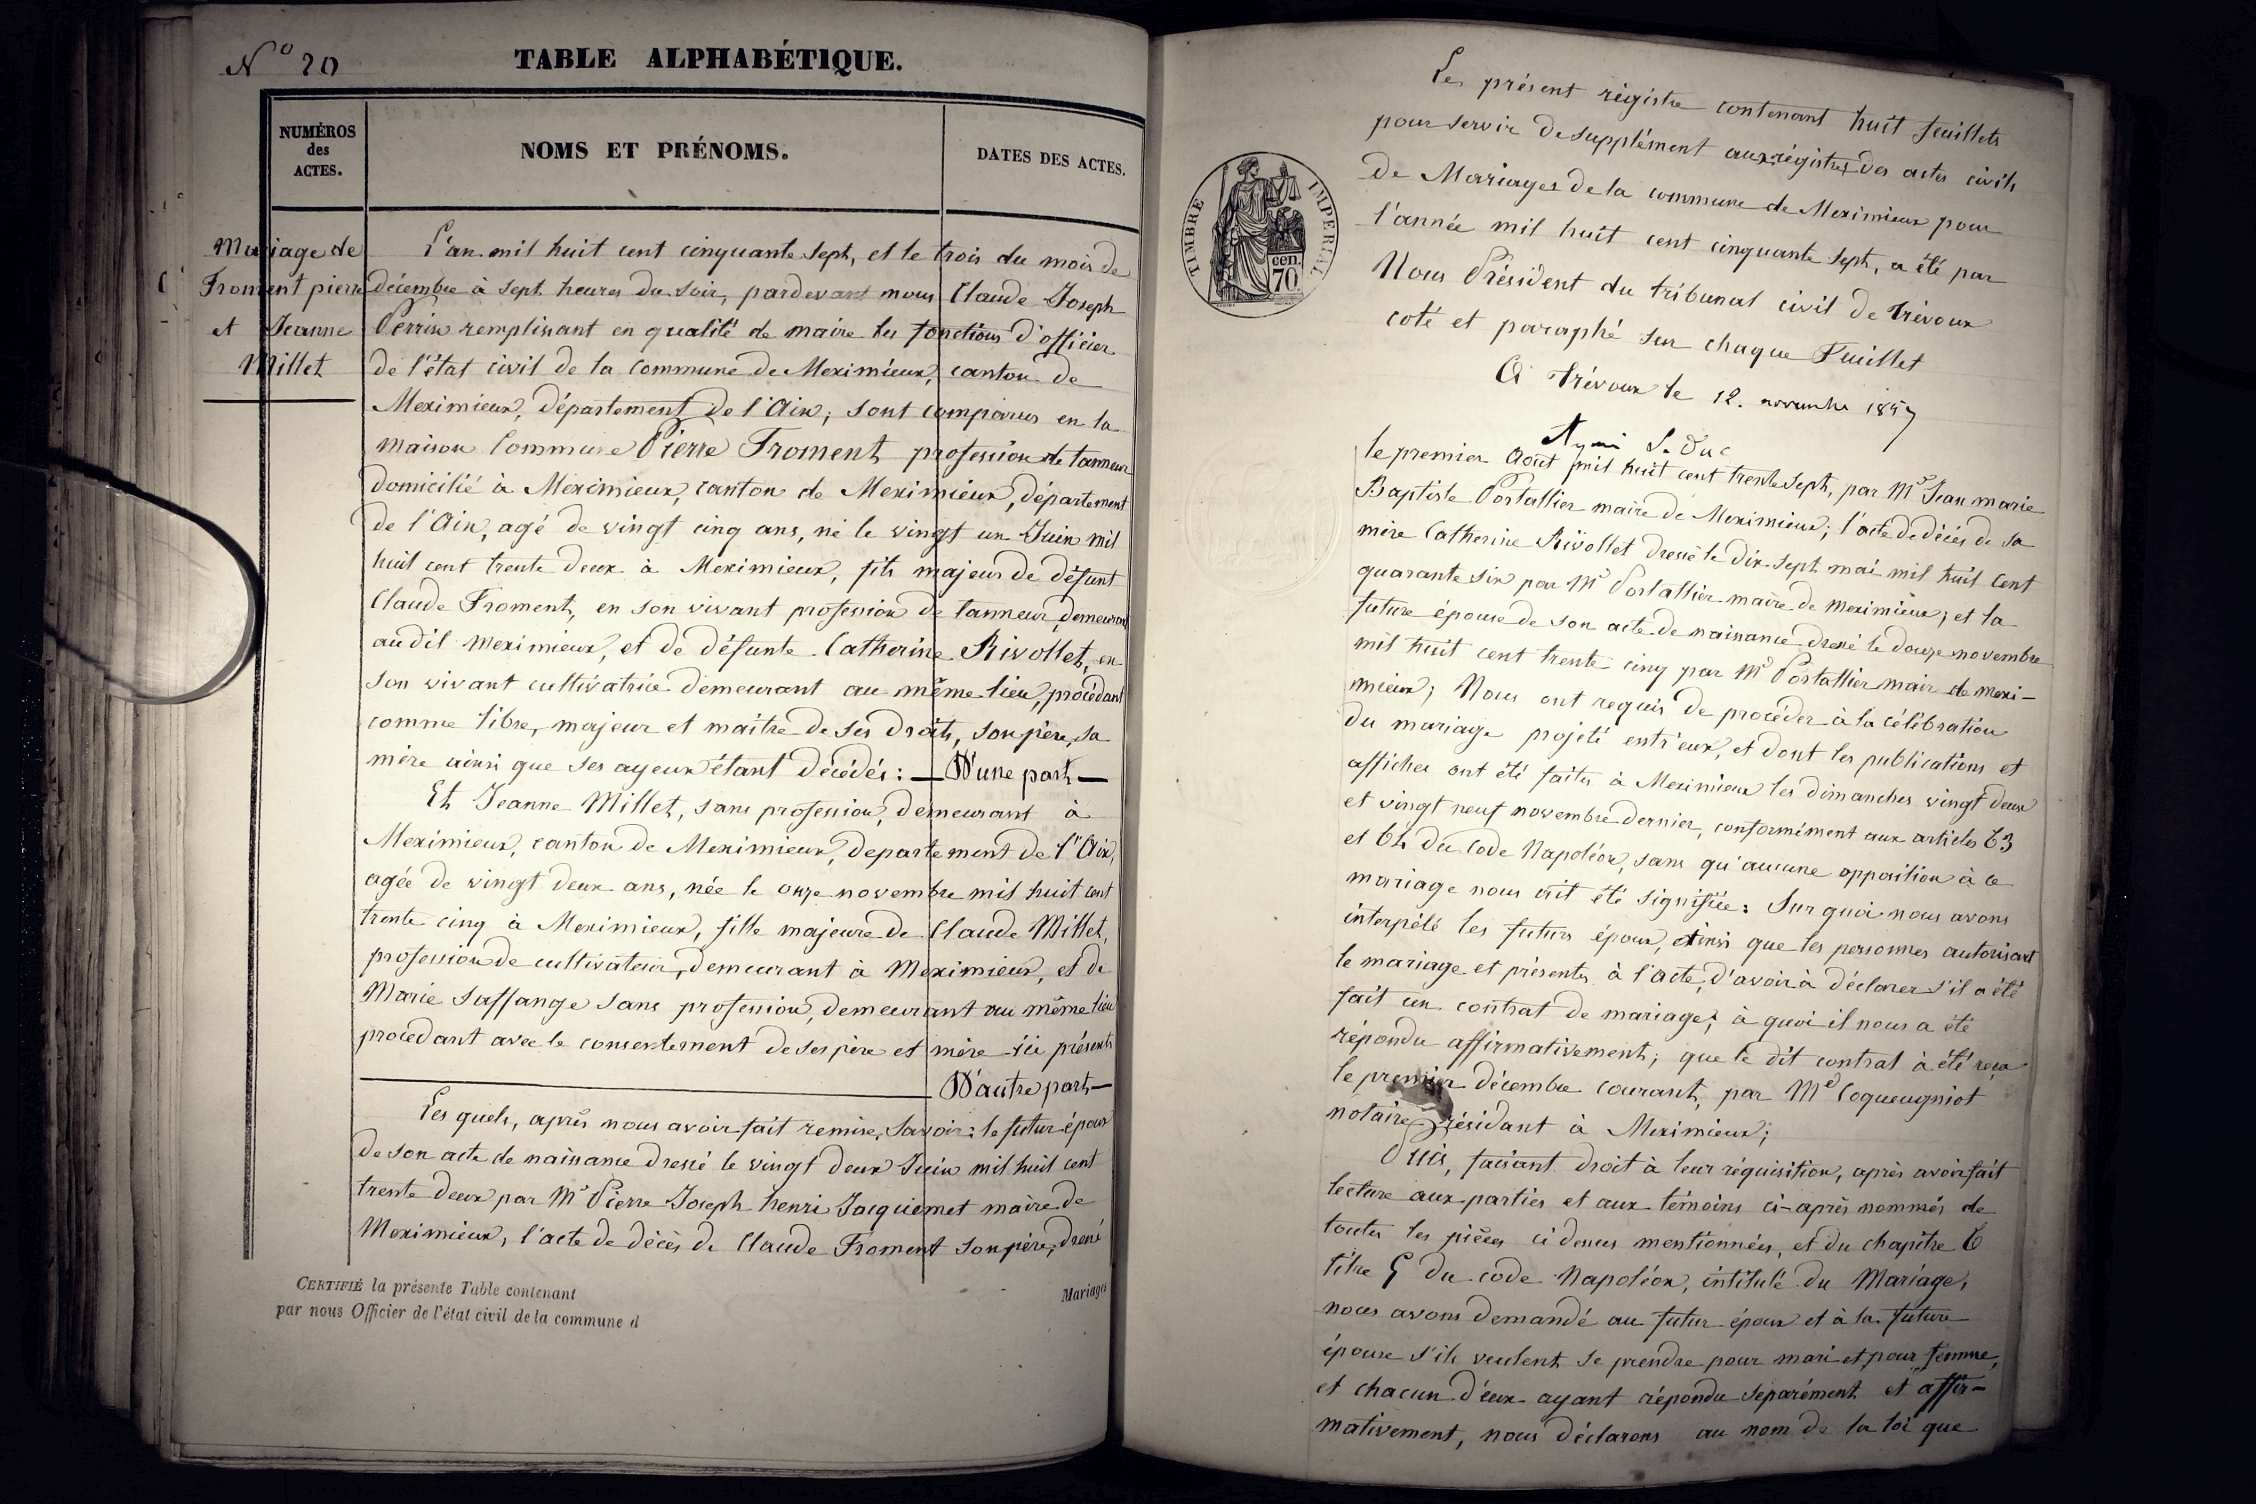 N° 20
TABLE ALPHABÉTIQUE.
NUMÉROS
des
ACTES.
NOMS ET PRÉNOMS.
DATES DES ACTES.
Mariage de
Froment pierre
et Jeanne
Millet
L'an mil huit cent cinquante sept, et le trois du mois de
décembre à sept heures du soir, pardevant nous Claude Joseph
Perrin remplissant en qualité de maire les fonctions d'officier
de l'état civil de la commune de Meximieux, canton de
Meximieux, département de l'Ain; sont comparus en la
maison Commune Pierre Froment profession de tanneur
domicilié à Meximieux, canton de Meximieux, département
de l'Ain, agé de vingt cinq ans, né le vingt un Juin mil
huit cent trente deux à Meximieux, fils majeur de défunt
Claude Froment, en son vivant profession de tanneur, demeurant
au dit Meximieux, et de défunte Catherine Rivollet, en
son vivant cultivatrice demeurant au même lieu, procédant
comme libre, majeur et maître de ses droits, son père, sa
mère ainsi que ses ayeux étant décédés: — D'une part —
Et Jeanne Millet, sans profession, demeurant à
Meximieux, canton de Meximieux, departement de l'Ain,
agée de vingt deux ans, née le onze novembre mil huit cent
trente cinq à Meximieux, fille majeure de Claude Millet,
profession de cultivateur, demeurant à Meximieux, et de
Marie Saffange sans profession, demeurant au même lieu
procédant avec le consentement de ses père et mère ici présents
D'autre part —
Les quels, après nous avoir fait remise, Savoir: le futur époux
de son acte de naissance dressé le vingt deux Juin mil huit cent
trente deux par Mr Pierre Joseph henri Jacquemet maire de
Meximieux, l'acte de décès de Claude Froment son père, dressé
CERTIFIÉ la présente Table contenant
Mariages
par nous Officier de l'état civil de la commune d
TIMBRE IMPERIAL
cen.
70
Le présent régistre contenant huit feuillets
pour servir de supplément aux régistres des actes civils
de Mariages de la commune de Meximieux pour
l'année mil huit cent cinquante sept, a été par
Nous Président du tribunal civil de Trévoux
coté et paraphé sur chaque Feuillet
A Trévoux le 12. novembre 1857
le premier Août mil huit cent trente sept, par Mr Jean marie
Baptiste Portallier maire de Meximieux; l'acte de décès de sa
mère Catherine Rivollet dressé le dix sept mai mil huit cent
quarante six par Mr Portallier maire de meximieux; et la
future épouse de son acte de naissance dressé le douze novembre
mil huit cent trente cinq par Mr Portallier maire de mexi-
mieux; Nous ont requis de procéder à la célébration
du mariage projeté entr'eux, et dont les publications et
affiches ont été faites à Meximieux les dimanches vingt deux
et vingt neuf novembre dernier, conformément aux articles 63
et 64 du Code Napoléon, sans qu'aucune opposition à ce
mariage nous ait été signifiée: Sur quoi nous avons
interpélé les futurs époux, ainsi que les personnes autorisant
le mariage et présentes à l'acte, d'avoir à déclarer s'il a été
fait un contrat de mariage; à quoi il nous a été
répondu affirmativement; que le dit contrat à été reçu
le premier décembre courant, par Me Coqueugniot
notaire résidant à Meximieux;
Puis, faisant droit à leur réquisition, après avoir fait
lecture aux parties et aux témoins ci-après nommés de
toutes les pièces ci dessus mentionnées, et du chapitre 6
titre 5 du code Napoléon, intitulé du Mariage,
nous avons demandé au futur époux et à la future
épouse s'ils veulent se prendre pour mari et pour femme,
et chacun d'eux ayant répondu séparément et affir-
mativement, nous déclarons au nom de la loi que